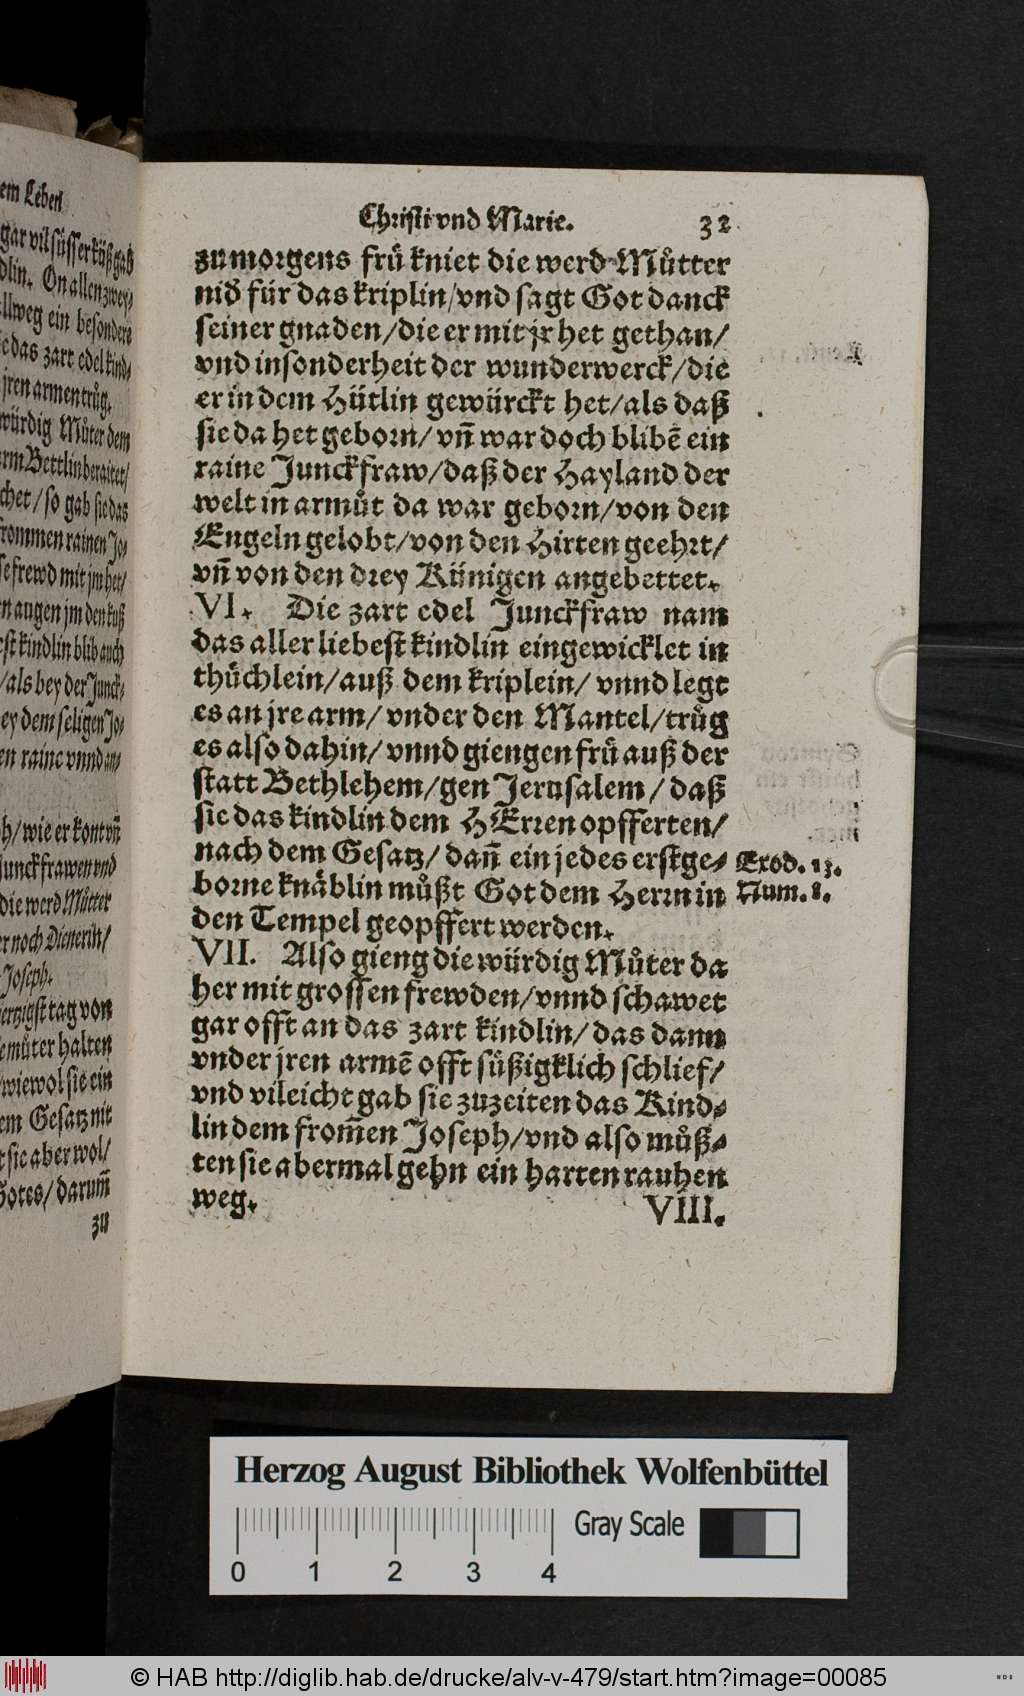 em Leben
gar vil süsser küß gab
dlin. On allen zwey-
llweg ein besondere
e das zart edel kind-
jren armen trůg.
würdig Můter dem
arm Bettlin beraitet/
chet/ so gab sie das
frommen rainen Jo-
se frewd mit jm het/
n augen jm den kuß
est kindlin blib auch
/als bey der Junck-
ey dem seligen Jo-
en raine vnnd an-
ph/ wie er kont vñ
Junckfrawen vnd
die werd Můtter
er noch Dienerin/
Joseph.
ertzigst tag von
emůter halten
wiewol sie ein
em Gesatz nit
t sie aber wol/
Gotes/ darum̃
zu
Christi vnd Marie. 32
zu morgens frü kniet die werd Můtter
nid für das kriplin/vnd sagt Got danck
seiner gnaden/die er mit jr het gethan/
vnd insonderheit der wunderwerck/die
er in dem Hütlin gewürckt het/als daß
sie da het geborn/vñ war doch blibē ein
raine Junckfraw/daß der Hayland der
welt in armůt da war geborn/von den
Engeln gelobt/von den Hirten geehrt/
vñ von den drey Künigen angebettet.
VI. Die zart edel Junckfraw nam
das aller liebest kindlin eingewicklet in
thüchlein/auß dem kriplein/ vnnd legt
es an jre arm/ vnder den Mantel/trůg
es also dahin/ vnnd giengen frü auß der
statt Bethlehem/gen Jerusalem/ daß
sie das kindlin dem HErren opfferten/
nach dem Gesatz/ dañ ein jedes erstge- Exod. 13.
borne knäblin můßt Got dem Herrn in Num. 8.
den Tempel geopffert werden.
VII. Also gieng die würdig Můter da
her mit grossen frewden/vnnd schawet
gar offt an das zart kindlin/das dann
vnder jren armē offt süßigklich schlief/
vnd vileicht gab sie zuzeiten das Kind-
lin dem from̃en Joseph/vnd also můß-
ten sie abermal gehn ein harten rauhen
weg. VIII.
Herzog August Bibliothek Wolfenbüttel
Gray Scale
0 1 2 3 4
© HAB http://diglib.hab.de/drucke/alv-v-479/start.htm?image=00085